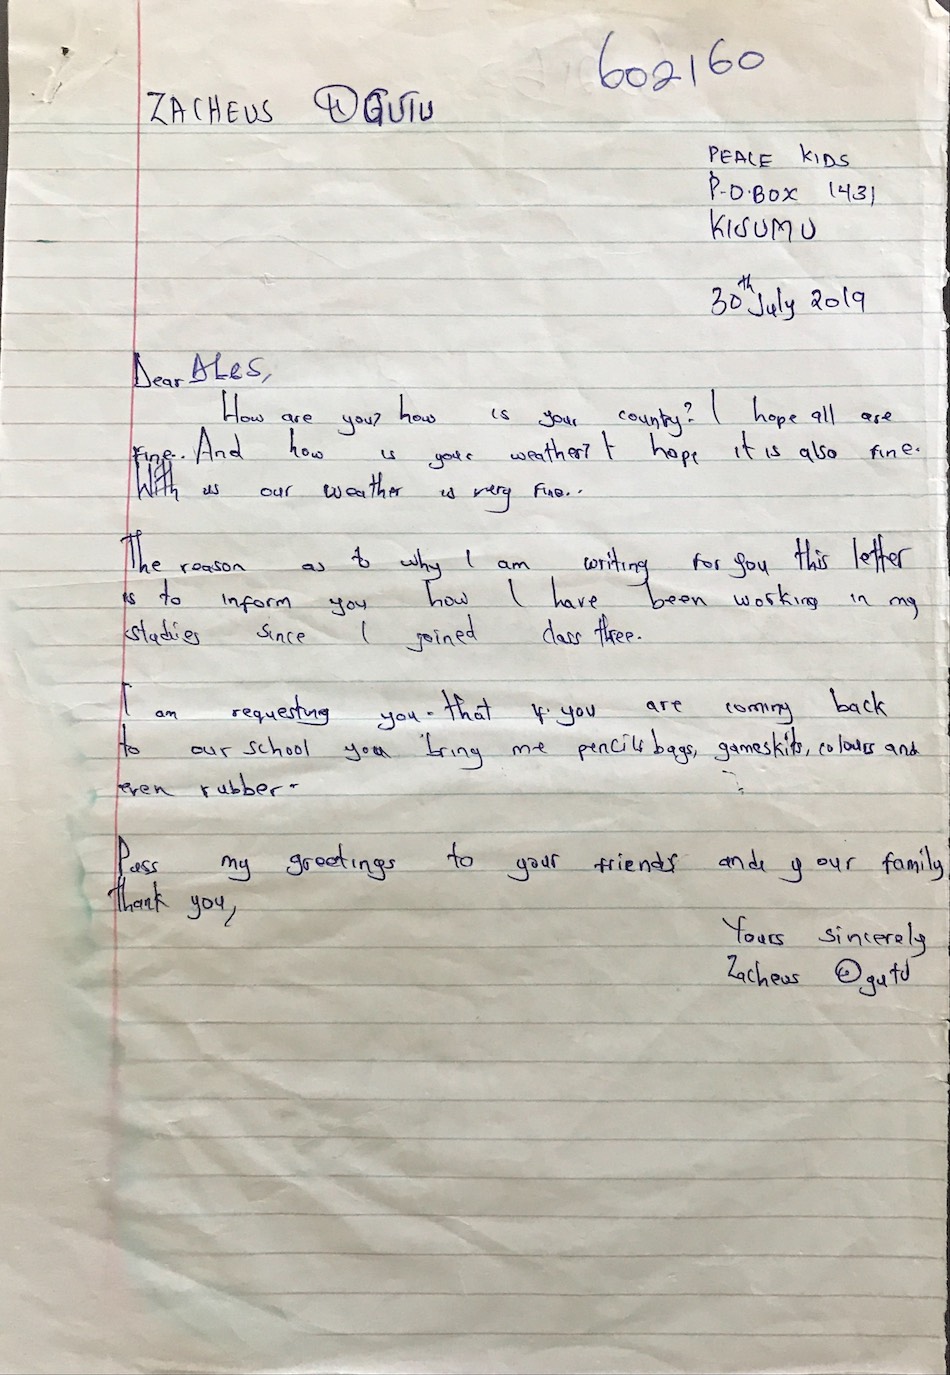 602160
ZACHEUS OGUTU
PEACE KIDS
P.O.BOX 1431
KISUMU
30th July 2019
Dear ALES,
How are you? how is your country? I hope all are
fine. And how is your weather? I hope it is also fine.
With us our weather is very fine..
The reason as to why I am writing for you this letter
is to inform you how I have been working in my
studies since I joined class three.
I am requesting you that if you are coming back
to our school you bring me pencils bags, gameskits, colours and
even rubber.
Pass my greetings to your friends ande your family
thank you,
Yours sincerely
Zacheus Ogutu